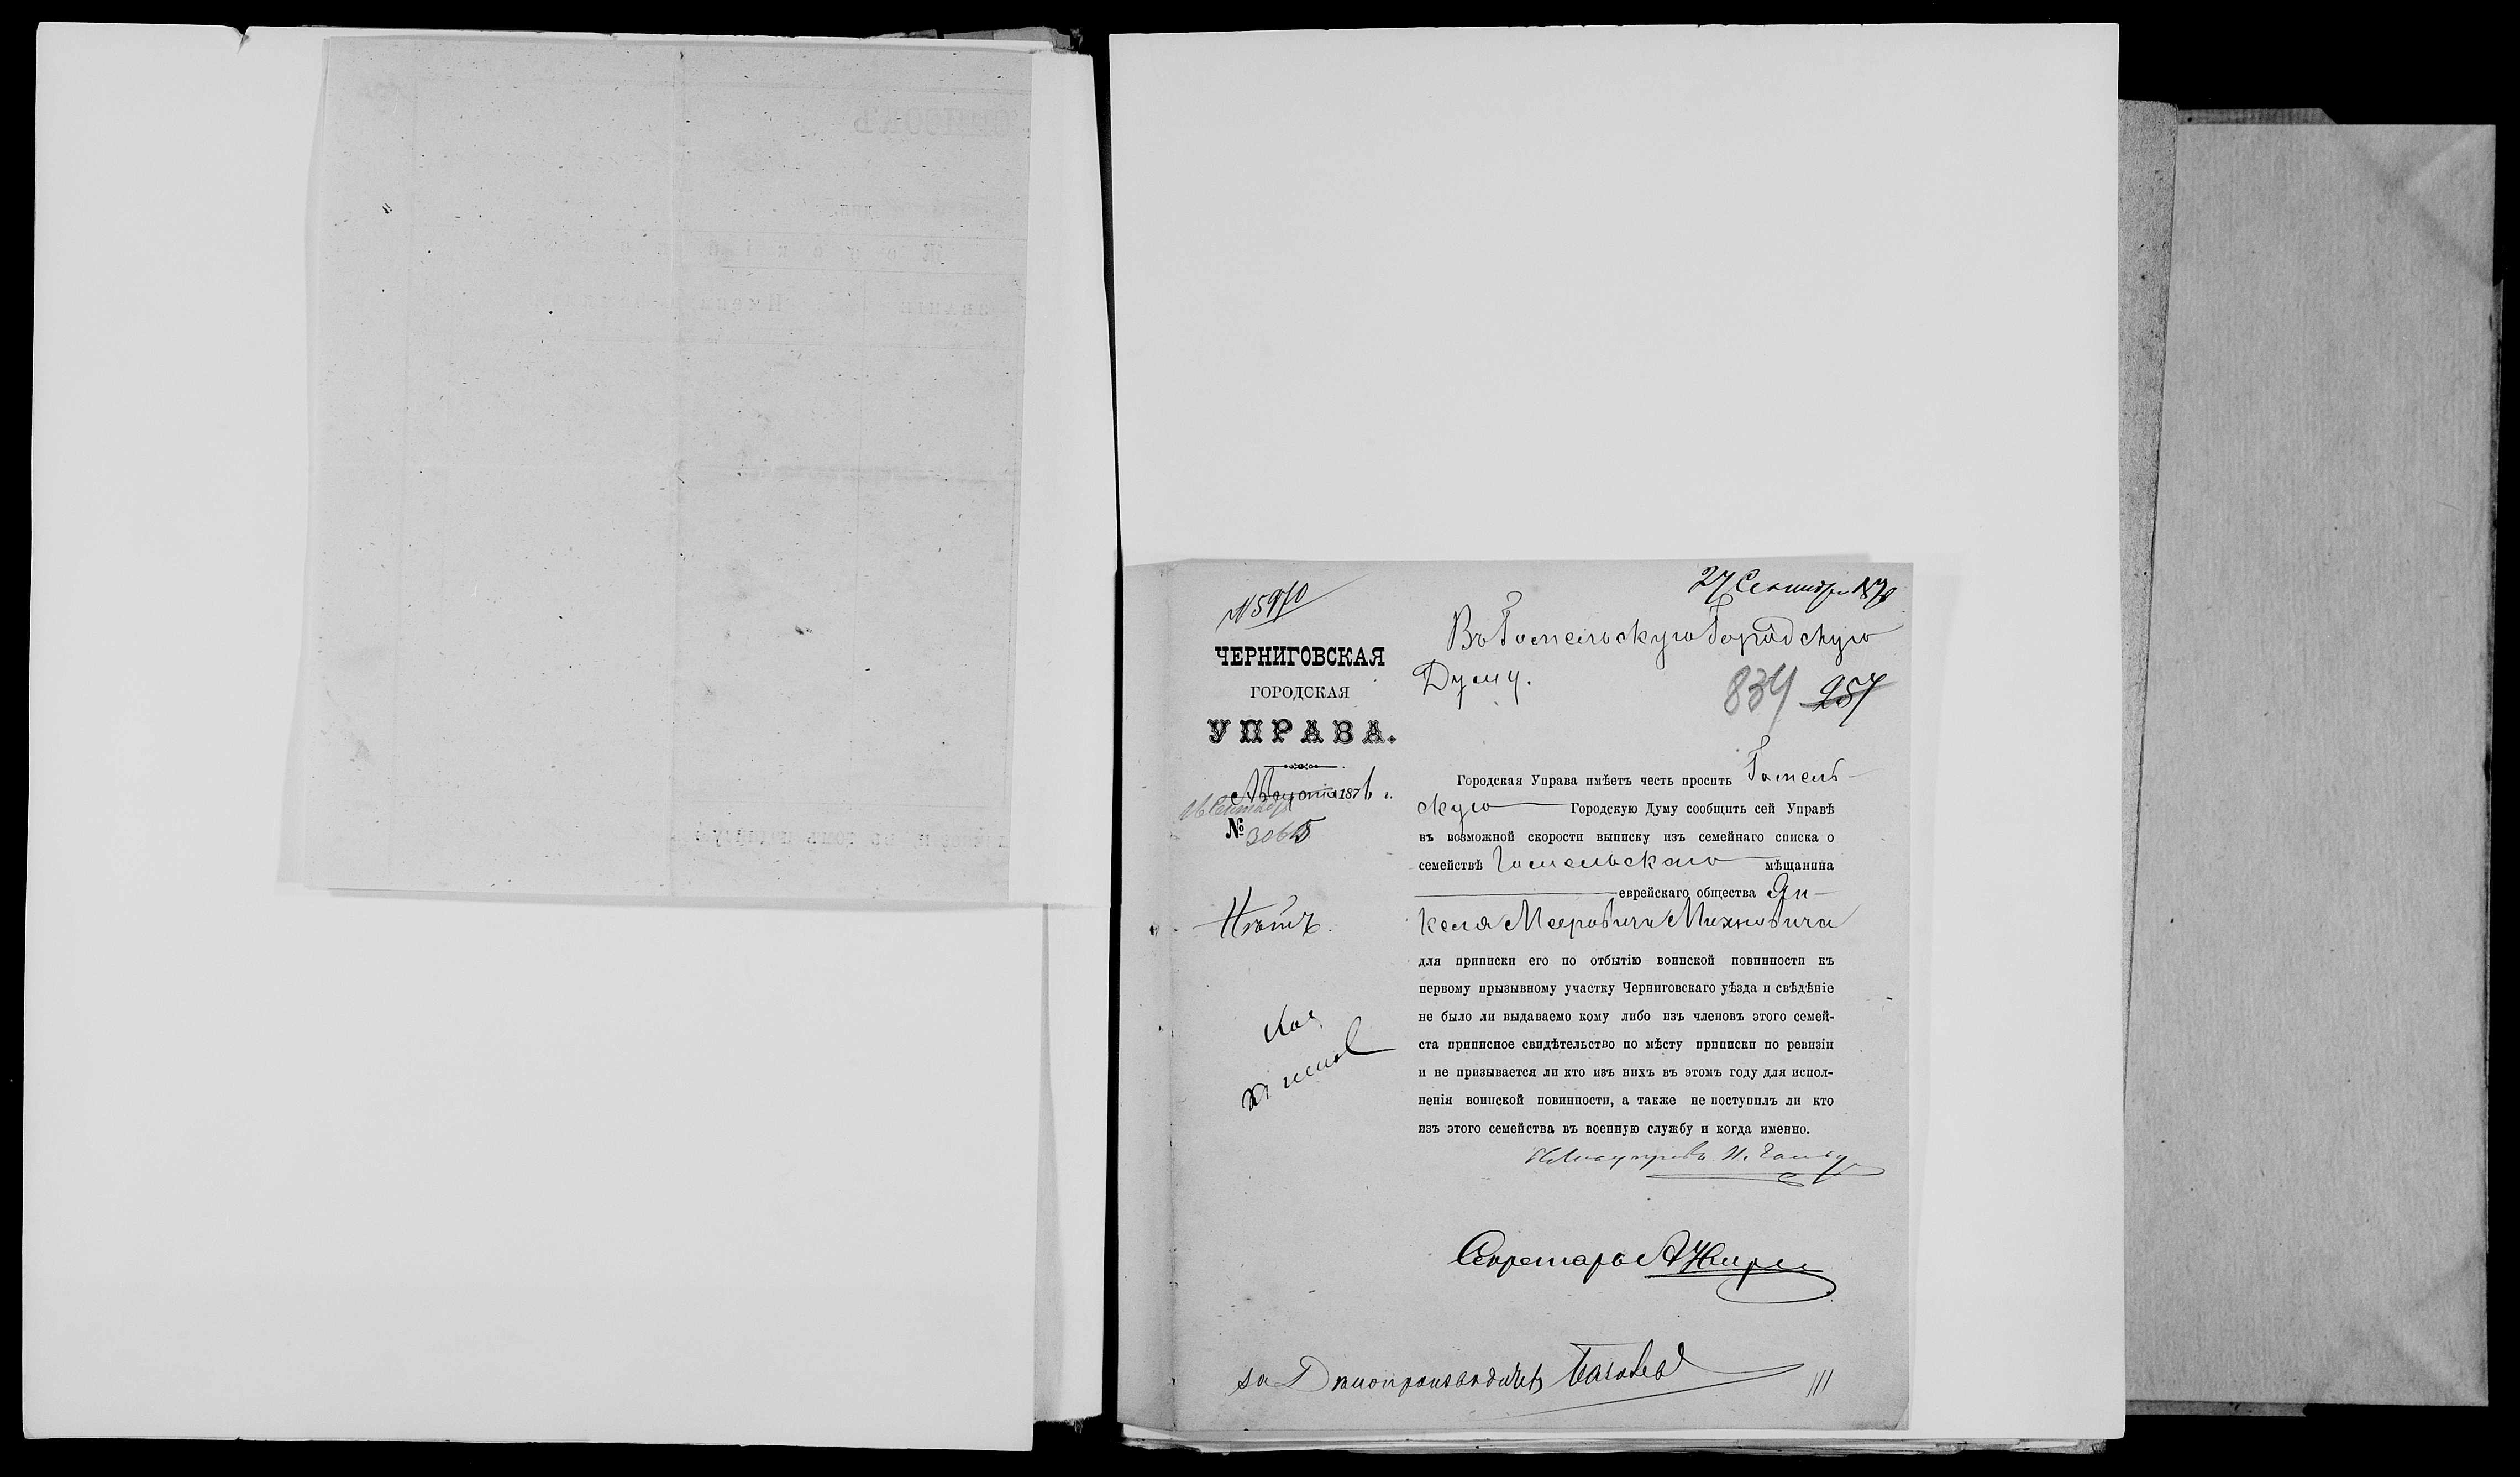 СПИСОКЪ
№ 5970
27 Сентября 1876
ЧЕРНИГОВСКАЯ
ГОРОДСКАЯ
УПРАВА.
Августа 1876 г.
16 Сентября
№ 3065
Нѣтъ.
Въ Гомельскую Городскую
Думу.
834 957
Городская Управа имѣетъ честь просить Гомель-
скую Городскую Думу сообщить сей Управѣ
въ возможной скорости выписку изъ семейнаго списка о
семействѣ Гомельскаго мѣщанина
еврейскаго общества Ян-
келя Мееровича Михновича
для приписки его по отбытію воинской повинности къ
первому призывному участку Черниговскаго уѣзда и свѣдѣніе
не было ли выдаваемо кому либо изъ членовъ этого семей-
ста приписное свидѣтельство по мѣсту приписки по ревизіи
и не призывается ли кто изъ нихъ въ этомъ году для испол-
ненія воинской повинности, а также не поступилъ ли кто
изъ этого семейства въ военную службу и когда именно.
Секретарь А
за Дѣлопроизводителя